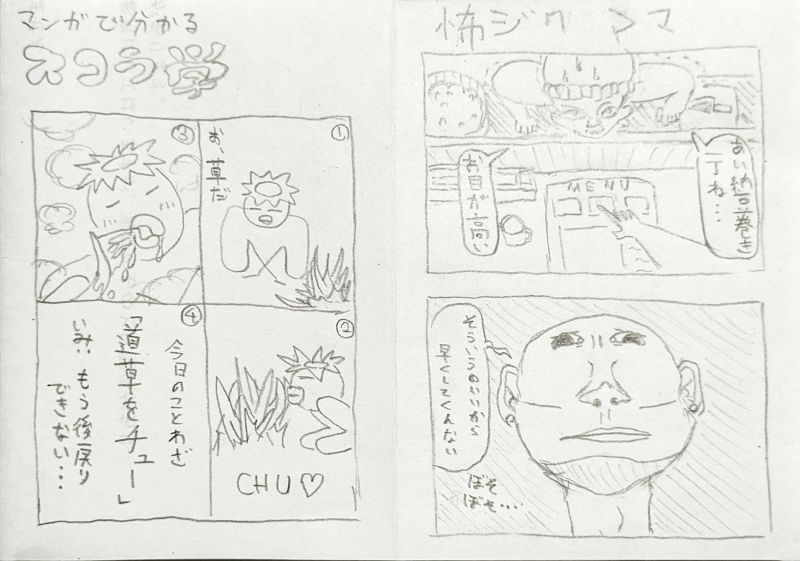 マンガで分かる
スコラ学
①
お、草だ
②
CHU♡
③
④
今日のことわざ
「道草をチュー」
いみ:もう後戻り
できない…
あい納豆巻き
一丁ね…
お目が高い
MENU
そういうのいいから
早くしてくんない
ぼそ
ぼそ…